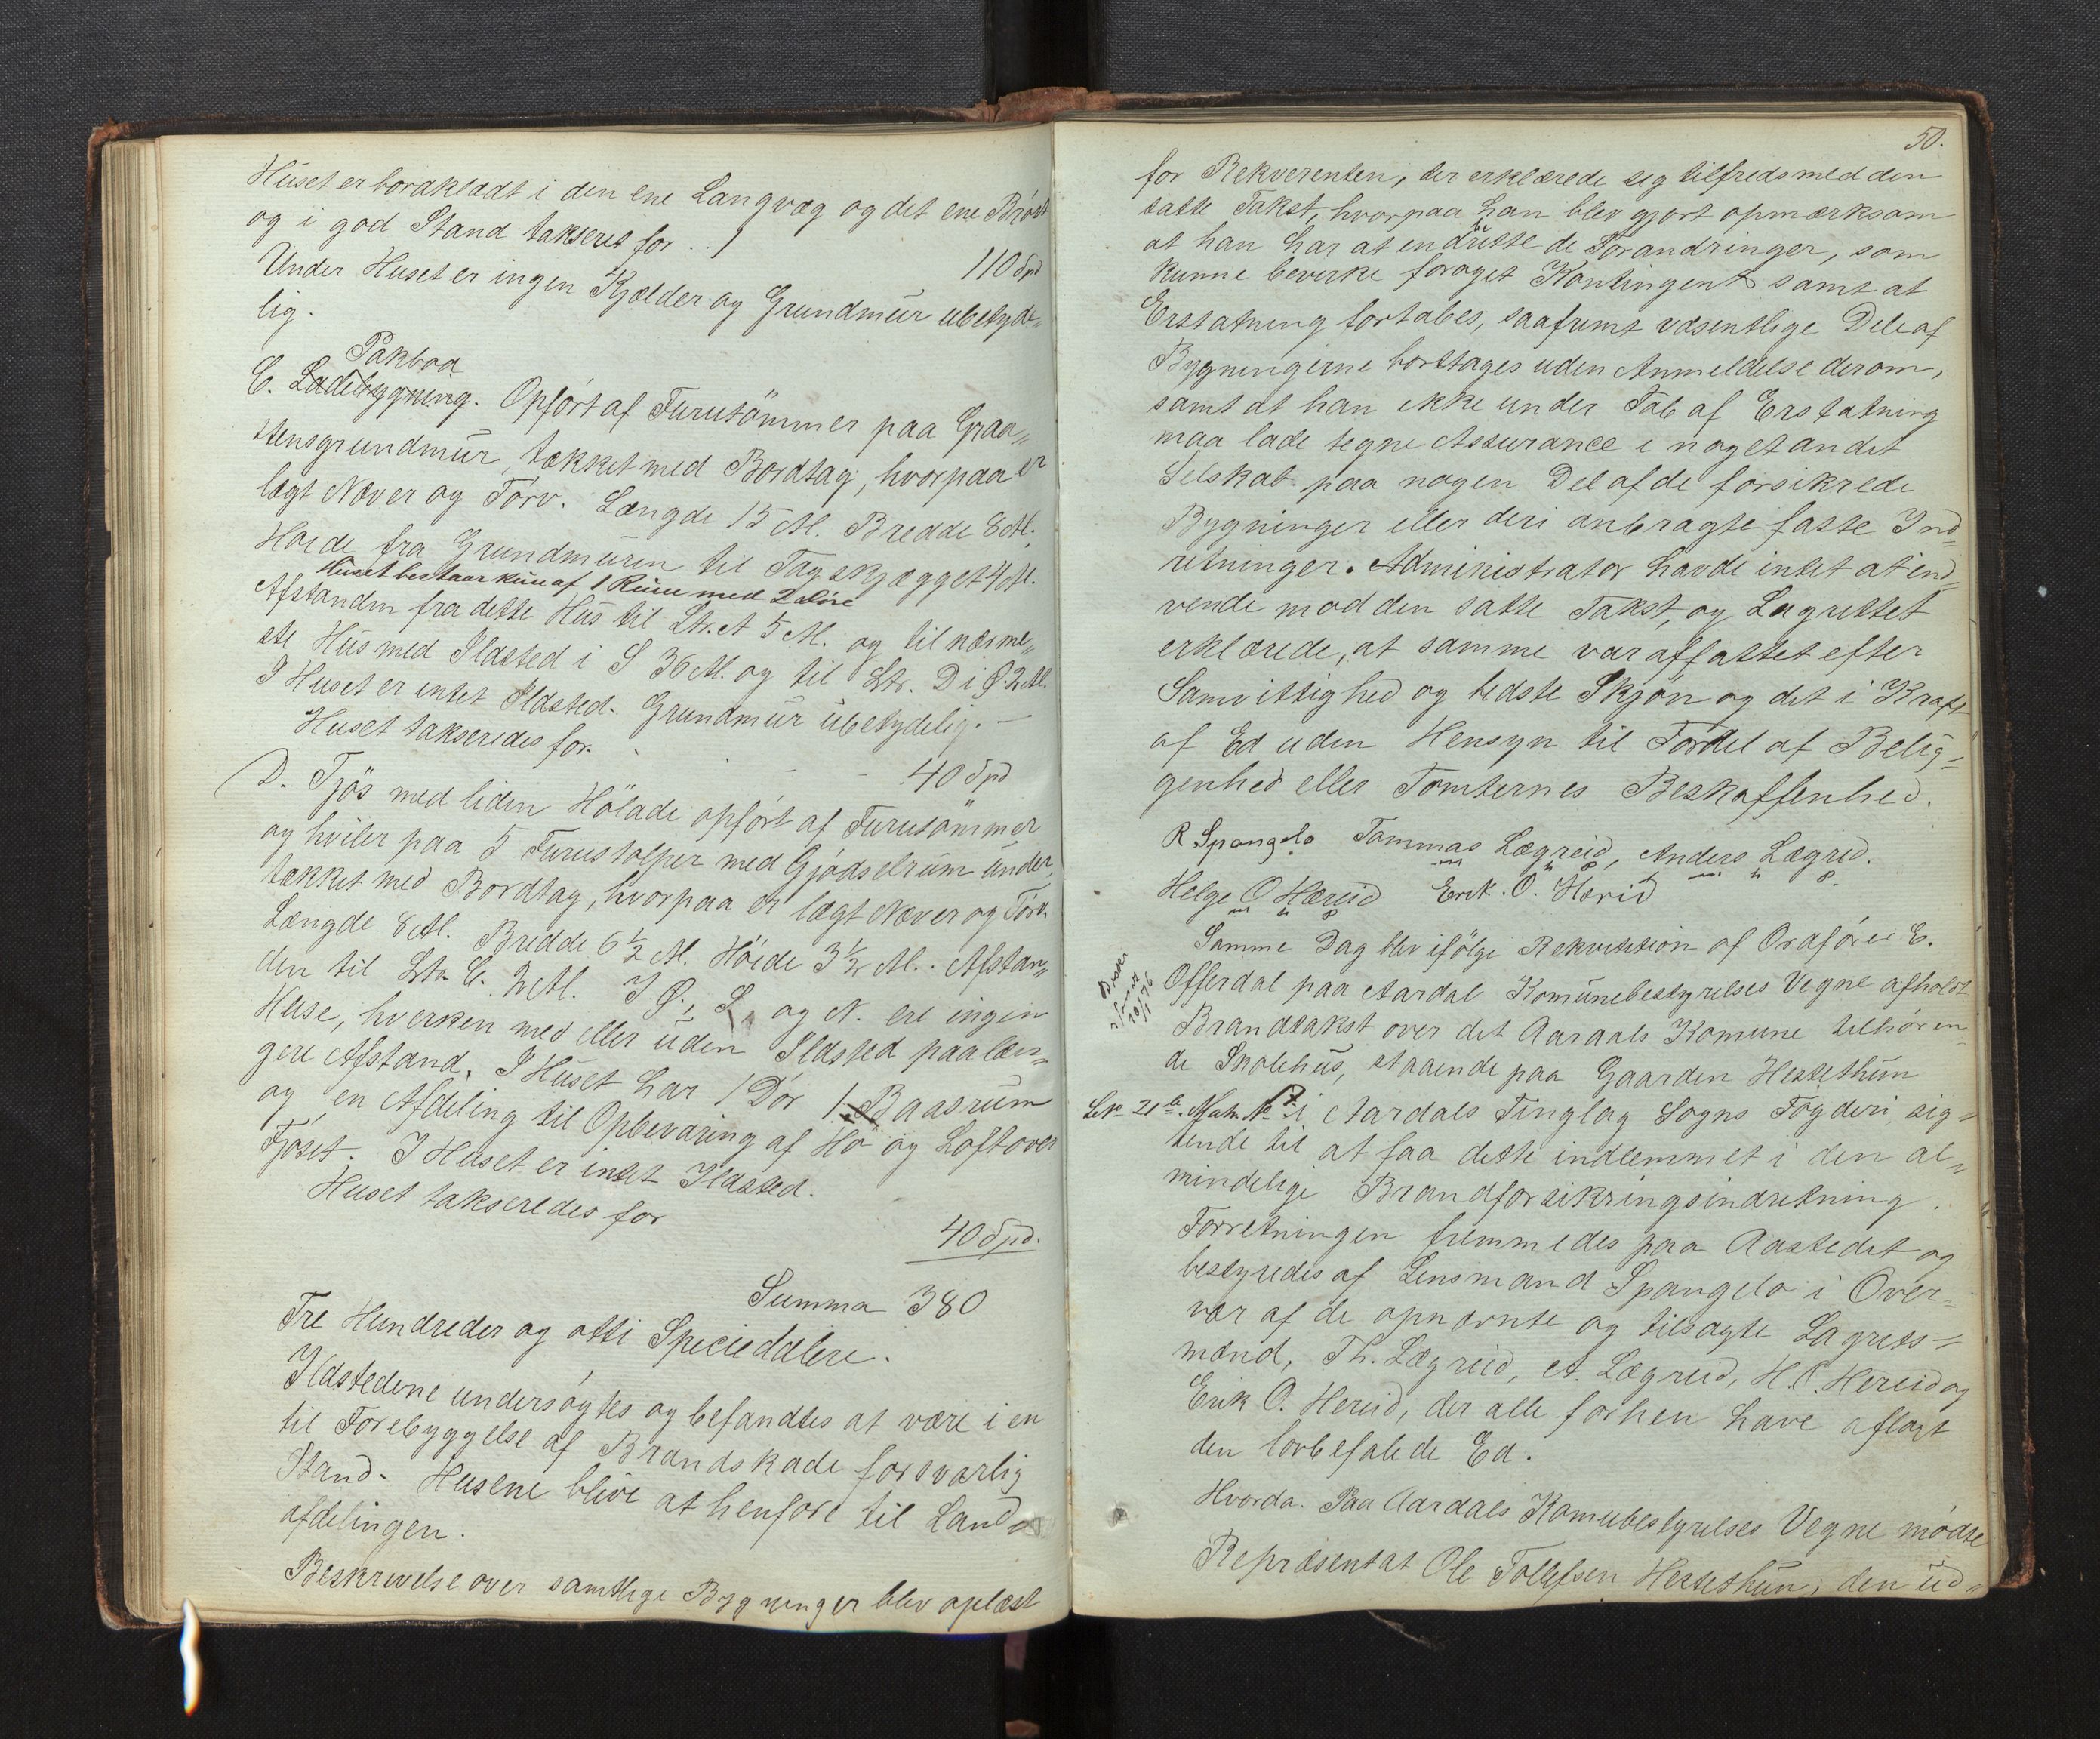 Huset er bordklædt i den ene Langvæg og det ene Bröst
og i god Stand takseret for . .
110 Spd
Under Huset er ingen Kjælder og Grundmur ubetyde„
lig.
Pakbod
C. Ladebygning. Opført af Furutömmer paa Graa„
stensgrundmur, tækket med Bordtag, hvorpaa er
lagt Næver og Törv. Længde 15 Al. Bredde 8 Al.
Höide fra Grundmuren til Tagskjægget 4 Al.
Huset bestaar kun af 1 Rum med 2 Döre
Afstanden fra dette Hus til Ltr. A 5 Al. og til nærme„
ste Hus med Ildsted i S 36 Al. og til Ltr. D i Ø. 2 Al.
I Huset er intet Ildsted. Grundmur ubetydelig. –
Huset takseredes for.
40 Spd
D. Fjös med liden Hölade opført af Furutömmer
og hviler paa 5 Furustolper med Gjödselrum under,
tækket med Bordtag, hvorpaa er lagt Næver og Törv.
Længde 8 Al. Bredde 6½ Al. Höide 3½ Al. . Afstan„
den til Ltr. C. 2 Al. I Ø., S., og N. ere ingen
Huse, hverken med eller uden Ildsted paa læn„
gere Afstand. I Huset har 1 Dör 1 Baasrum
og en Afdeling til Opbevaring af Hö og Loft over
Fjöset. I Huset er intet Ildsted.
Huset takseredes for
40 Spd.
Summa 380
Tre Hundreder og otti Speciedalere.
Ildstedene undersögtes og befandtes at være i en
til Forebyggelse af Brandskade forsvarlig
Stand. Husene blive at henføre til Land„
afdelingen.
Beskrivelse over samtlige Bygninger blev oplæst
50.
for Rekverenten, der erklærede seg tilfreds med den
satte Takst, hvorpaa han blev gjort opmærksom
at han har at endutte de Forandringer, som
kunne bevirke foröget Kontingent samt at
Erstatning fortabes, saafremt væsentlige Dele af
Bygningerne borttages uden Anmeldelse derom,
samt at han ikke under Tab af Erstatning
maa lade tegne Assurance i noget andet
Selskab paa nogen Del af de forsikrede
Bygninger eller deri anbragte faste Ind„
retninger. Administrator havde intet at ind„
vende mod den satte Takst, og Lagrettet
erklærede, at samme var affattet efter
Samvittighed og bedste Skjön og det i Kraft
af Ed uden Hensyn til Fordel af Belig„
genhed eller Tomternes Beskaffenhed.
R Spangelo Tommas Lægreid, Anders Lægred.
Helge O Hæreid Erik. O. Hærid
Samme Dag blev ifölge Rekvisition af Ordförer E.
Offerdal paa Aardal Komunebestyrelses Vegne afholdt
Brandtakst over det Aardals Komune tilhören„
de Skolehus, staaende paa Gaarden Hestethun
i Aardals Tinglag Sogns Fögderi, sig„
tende til at faa dette indlemmet i den al„
mindelige Brandforsikringsindretning.
Forretningen fremmedes paa Aastedet og
bestyredes af Lensmand Spangelo i Over„
vær af de opnævnte og tilsagte Lagrets„
mænd, Th. Lægreid, A. Lægreid, H. O. Hereid og
Erik O. Hereid, der alle forhen have aflagt
den lovbefalede Ed.
Hvorda. Paa Aardals Komubestyrelses Vegne mödte
Repræsentat Ole Tollefsen Hestethun; den ud„